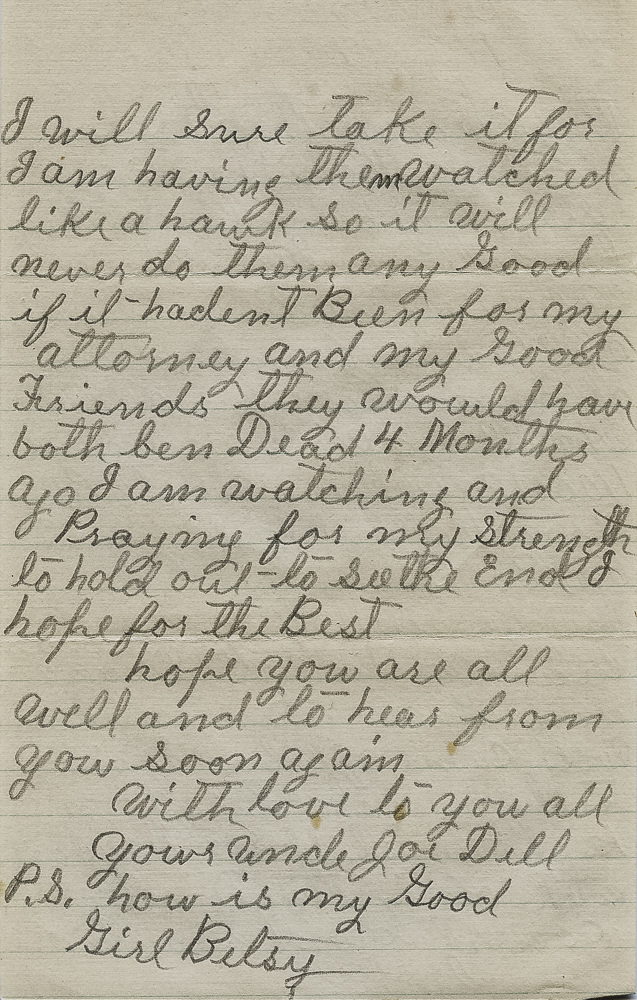 I will sure take it for
I am having them watched
like a hawk so it will
never do them any Good
if it hadent Bien for my
attorney and my Good
Friends they wouuld have
both ben Dead 4 Months
ago I am watching and
Praying for my strength
to hold out to see the End I
hope for the Best
hope you are all
well and to hear from
you soon again
With love to you all
yours uncle Joe Dell
P.S. how is my Good
Girl Betsy